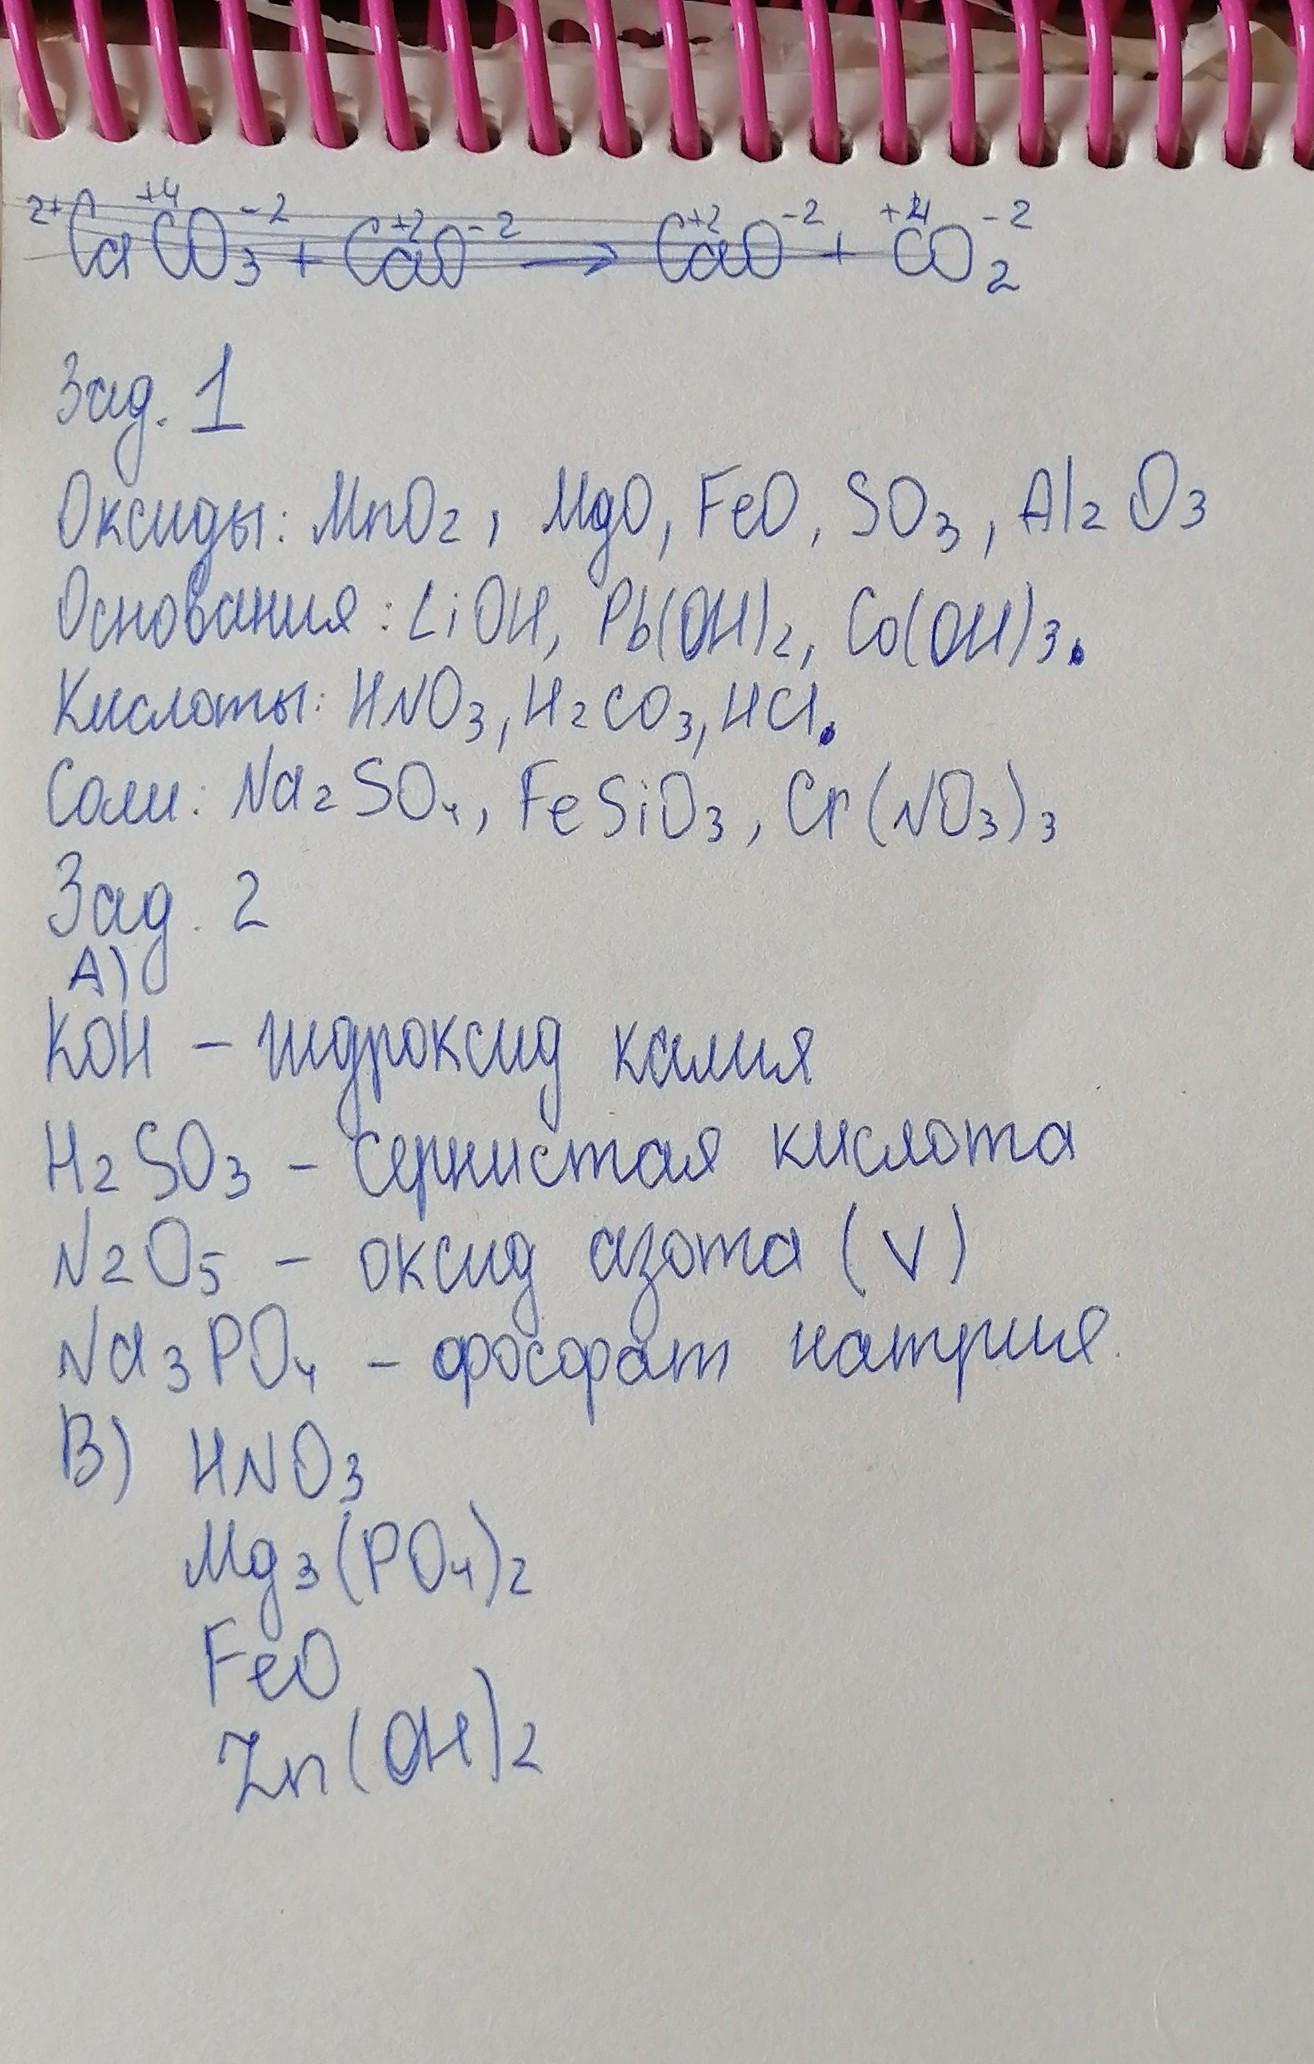 2+ Ca +4 CO3 -2 + Ca +2 O -2 → Ca +2 O -2 + +4 CO2 -2
Зад. 1
Оксиды: MnO2, MgO, FeO, SO3, Al2O3
Основания: LiOH, Pb(OH)2, Co(OH)3.
Кислоты: HNO3, H2CO3, HCl.
Соли: Na2SO4, FeSiO3, Cr(NO3)3
Зад. 2
А)
KOH – гидроксид калия
H2SO3 – сернистая кислота
N2O5 – оксид азота (V)
Na3PO4 – фосфат натрия.
В) HNO3
Mg3(PO4)2
FeO
Zn(OH)2